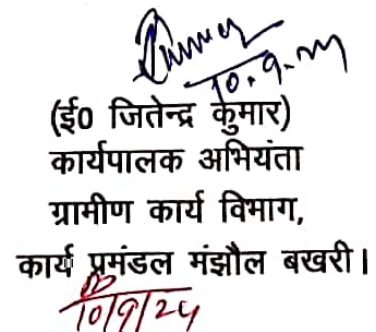 10.9.24
(ई0 जितेन्द्र कुमार)
कार्यपालक अभियंता
ग्रामीण कार्य विभाग,
कार्य प्रमंडल मंझौल बखरी।
10/9/24